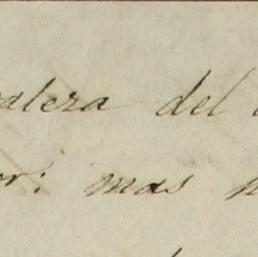 alera del
or: mas